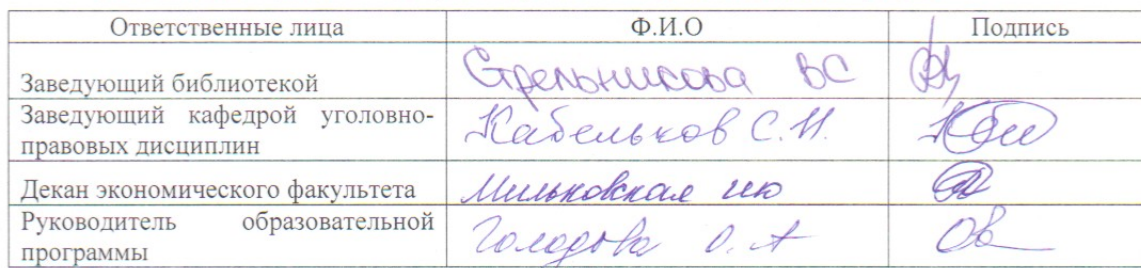 Ответственные лица Ф.И.О Подпись
Заведующий библиотекой Стрельникова ВС
Заведующий кафедрой уголовно-
правовых дисциплин Кабельков С.Н.
Декан экономического факультета Мильковская ию
Руководитель образовательной
программы Голодова О. А